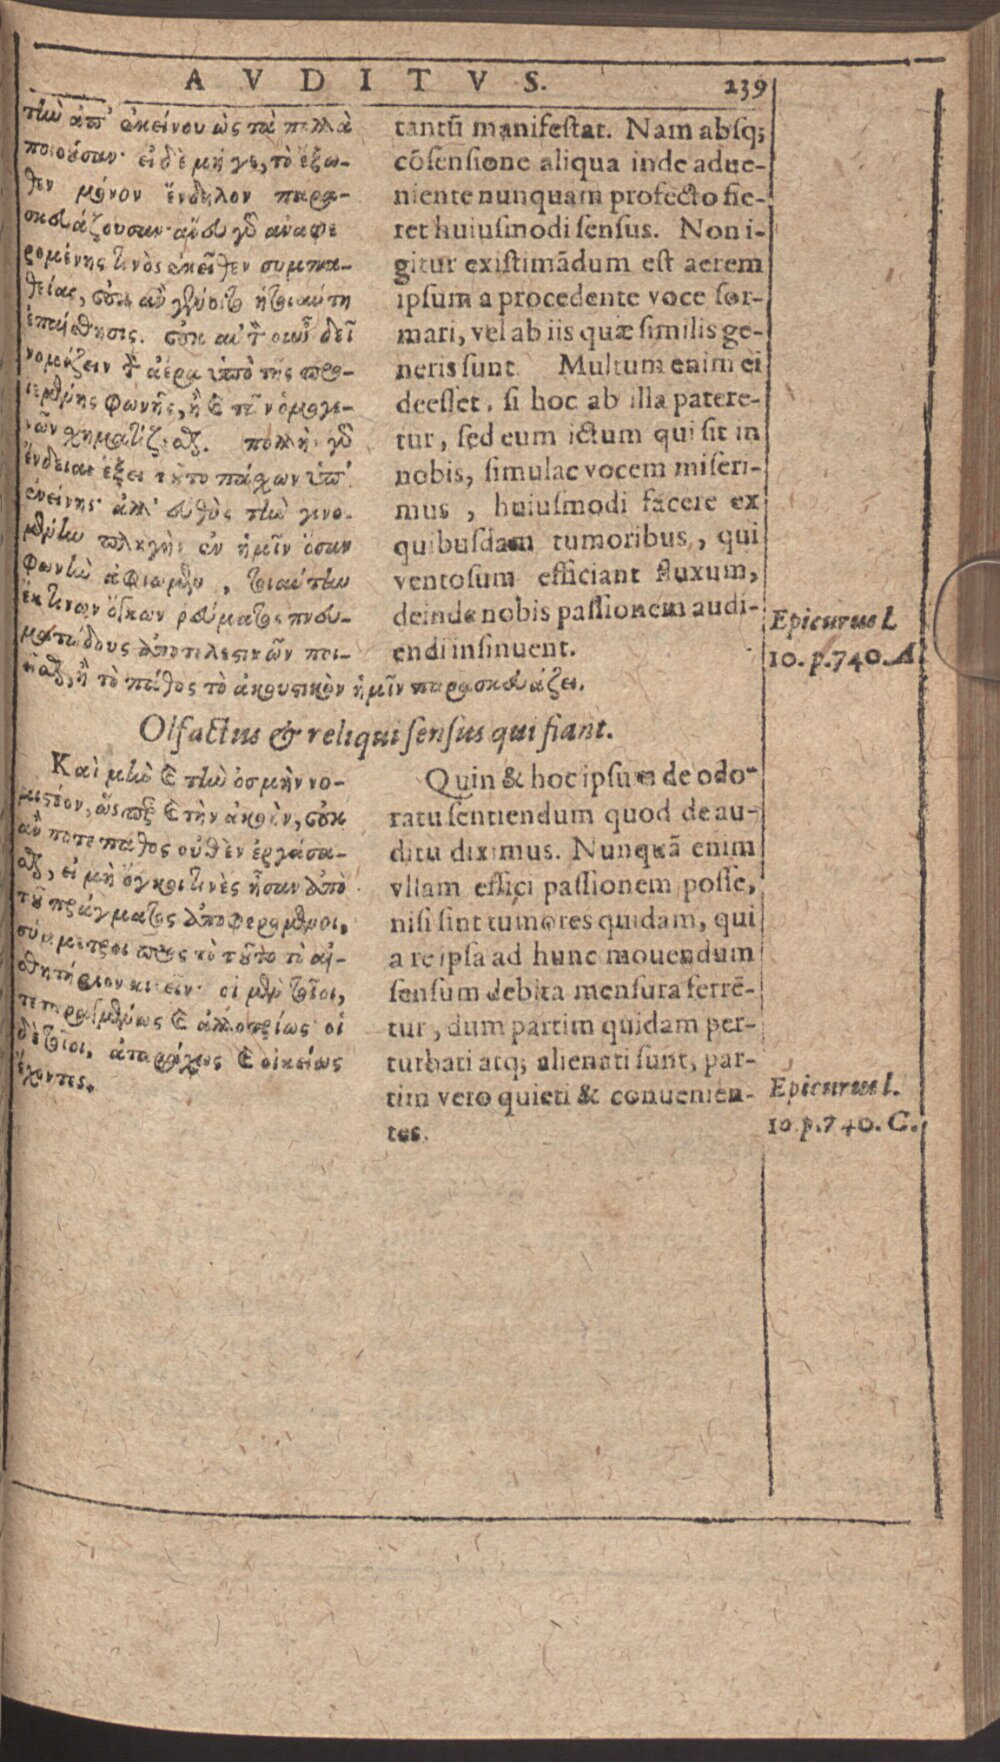 AVDITVS. 239
τὴν ἀπ' ἐκείνου ὡς τὰ πολλὰ
ποιοῦσαν· εἰ δὲ μή γε, τὸ ἔξω-
θεν μόνον ἔνδηλον παρα-
σκευάζουσαν· ἄνευ γὰρ ἀναφε
ρομένης τινὸς ἐκεῖθεν συμπα-
θείας, οὐκ ἂν γένοιτο ἡ τοιαύτη
ἐπαίσθησις. οὐκ αὐτὸν οὖν δεῖ
νομίζειν τὸν ἀέρα ὑπὸ τῆς προ-
ιεμένης φωνῆς, ἢ καὶ τῶν ὁμογε-
νῶν χηματίζεσθαι. πολλὴν γὰρ
ἔνδειαν ἕξει τοῦτο πάχων ὑπ'
ἐκείνης· ἀλλ' εὐθὺς τὴν γινο-
μένην πληγὴν ἐν ἡμῖν ὅταν
φωνὴν ἀφιῶμεν, τοιαύτην
ἔκ τινων ὄγκων ῥεύματος πνευ-
ματώδους ἀποτελεστικῶν ποι-
εῖσθαι, ἣ τὸ πάθος τὸ ἀκουστικὸν ἡμῖν παρασκευάζει.
tantū manifestat. Nam absq;
cōsensione aliqua inde adue-
niente nunquam profecto fie-
ret huiusmodi sensus. Non i-
gitur existimādum est aerem
ipsum a procedente voce for-
mari, vel ab iis quæ similis ge-
neris sunt. Multum enim ei
deesset, si hoc ab illa patere-
tur, sed eum ictum qui sit in
nobis, simulac vocem miseri-
mus, huiusmodi facere ex
quibusdam tumoribus, qui
ventosum efficiant fluxum,
deinde nobis passionem audi-
endi insinuent.
Epicurus l.
10. p. 740. A.
Olfactus & reliqui sensus qui fiant.
Καὶ μὴν καὶ τὴν ὀσμὴν νο-
μιστέον, ὥσπερ καὶ τὴν ἀκοὴν, οὐκ
ἄν ποτε πάθος οὐθὲν ἐργάσα-
σθαι, εἰ μὴ ὄγκοι τινὲς ἦσαν ἀπὸ
τοῦ πράγματος ἀποφερόμενοι,
σύμμετροι πρὸς τὸ τοῦτο τὸ αἰ-
σθητήριον κινεῖν· οἱ μὲν τοῖοι,
τεταραγμένως καὶ ἀλλοτρίως οἱ
δὲ τοῖοι, ἀταράχως καὶ οἰκείως
ἔχοντες.
Quin & hoc ipsum de odo-
ratu sentiendum quod de au-
ditu diximus. Nunquā enim
vllam effici passionem posse,
nisi sint tumores quidam, qui
a re ipsa ad hunc mouendum
sensum debita mensura ferrē-
tur, dum partim quidam per-
turbati atq; alienati sunt, par-
tim vero quieti & conuenien-
tes.
Epicurus l.
10. p. 740. C.